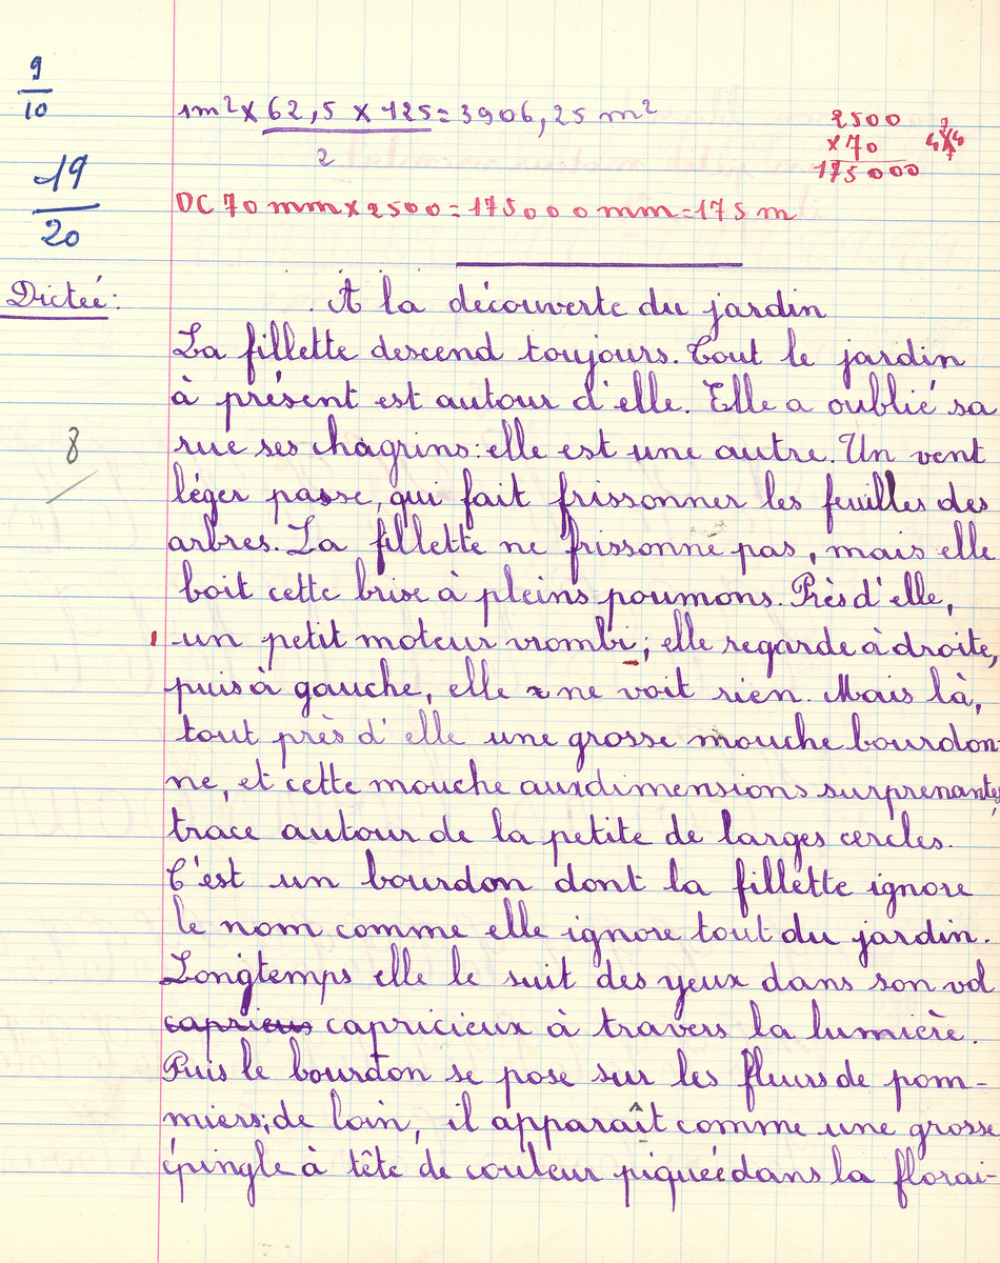 9
10
1m² x 62,5 x 125 = 3906,25 m²
2
2500
x 70
175000
19
20
DC 70 mm x 2500 = 175000 mm = 175 m
Dictée:
A la découverte du jardin
La fillette descend toujours. Tout le jardin
à présent est autour d'elle. Elle a oublié sa
rue ses chagrins: elle est une autre. Un vent
8
léger passe, qui fait frissonner les feuilles des
arbres. La fillette ne frissonne pas, mais elle
boit cette brise à pleins poumons. Près d'elle,
1 un petit moteur vrombi; elle regarde à droite,
puis à gauche, elle ne voit rien. Mais là,
tout près d'elle une grosse mouche bourdon-
ne, et cette mouche aux dimensions surprenantes
trace autour de la petite de larges cercles.
C'est un bourdon dont la fillette ignore
le nom comme elle ignore tout du jardin.
Longtemps elle le suit des yeux dans son vol
capricieux à travers la lumière.
Puis le bourdon se pose sur les fleurs de pom-
miers; de loin, il apparaît comme une grosse
épingle à tête de couleur piquée dans la florai-